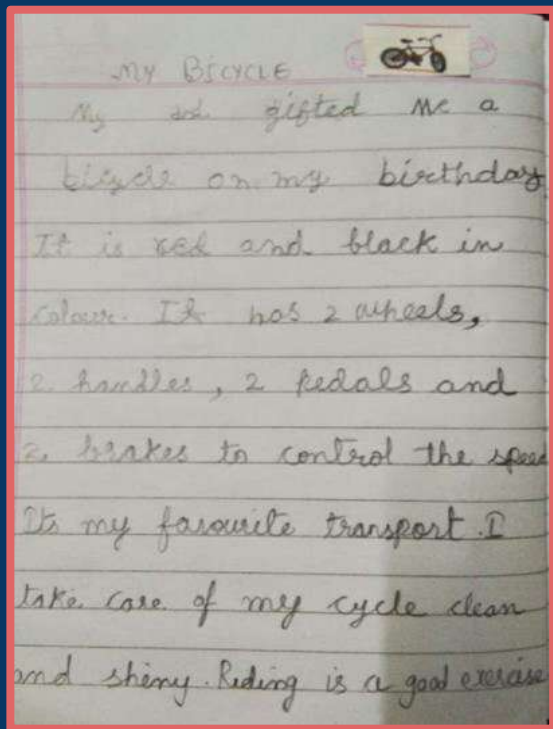 My BICYCLE
My dad gifted me a
bicycle on my birthday
It is red and black in
colour. It has 2 wheels,
2 handles, 2 pedals and
2 brakes to control the speed
Its my favourite transport. I
take care of my cycle clean
and shiny. Riding is a good exercise